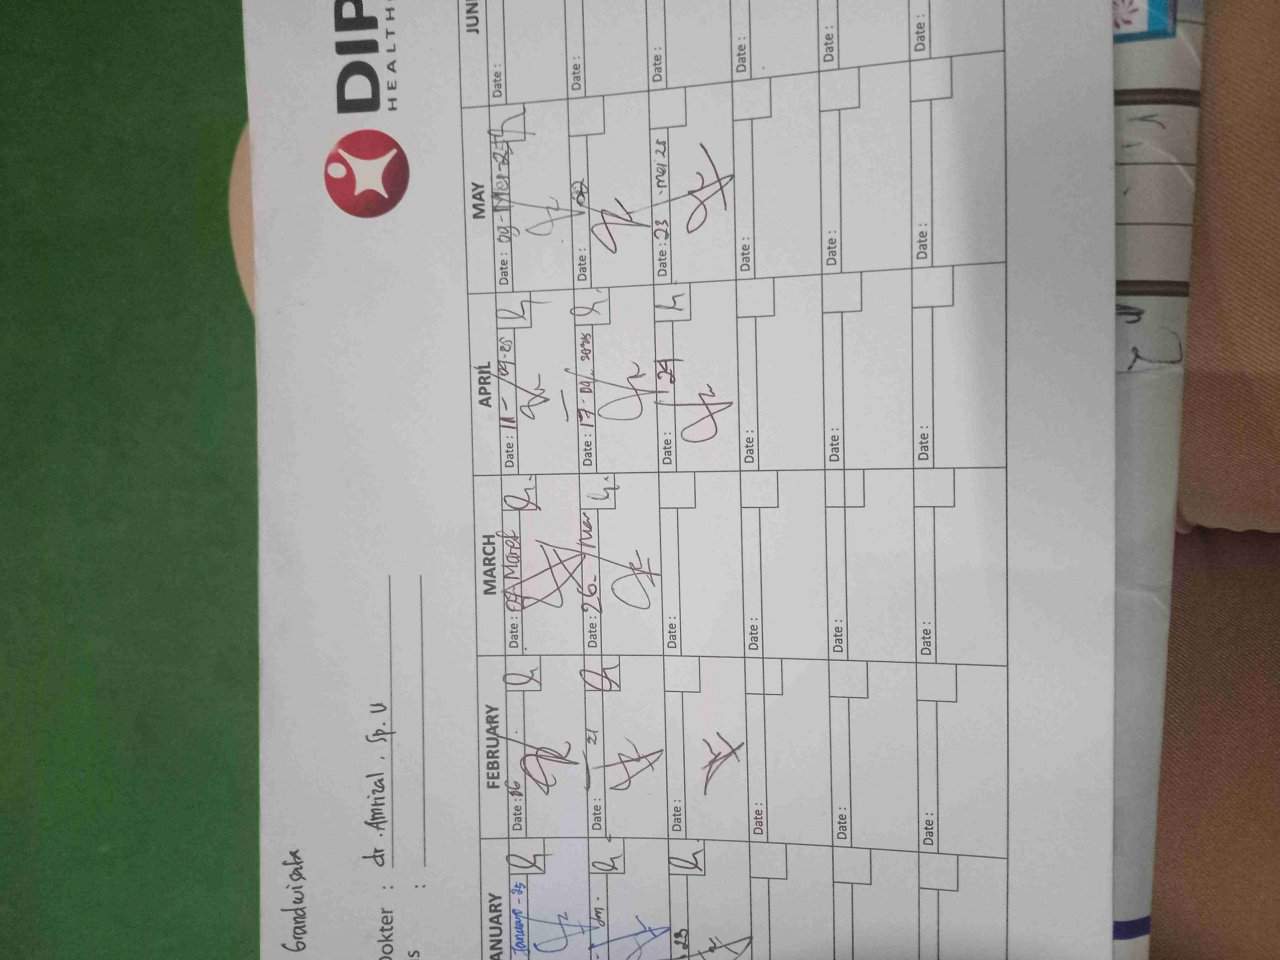 DIP
HEALTH
Grandwisata
Dokter : dr. Amrizal, Sp. U
s :
ANUARY FEBRUARY MARCH APRIL MAY JUN
January - 25 Date : 06 Date : Maret Date : 11 - /04-25 Date : 09 - Mei - 25 Date :
Jan. Date : 21 Date : 26 - Mar Date : 17 - 04/ 2025 Date : Date :
23 Date : Date : Date : 24 Date : 23 - mei 25 Date :
Date : Date : Date : Date : Date :
Date : Date : Date : Date : Date :
Date : Date : Date : Date : Date :